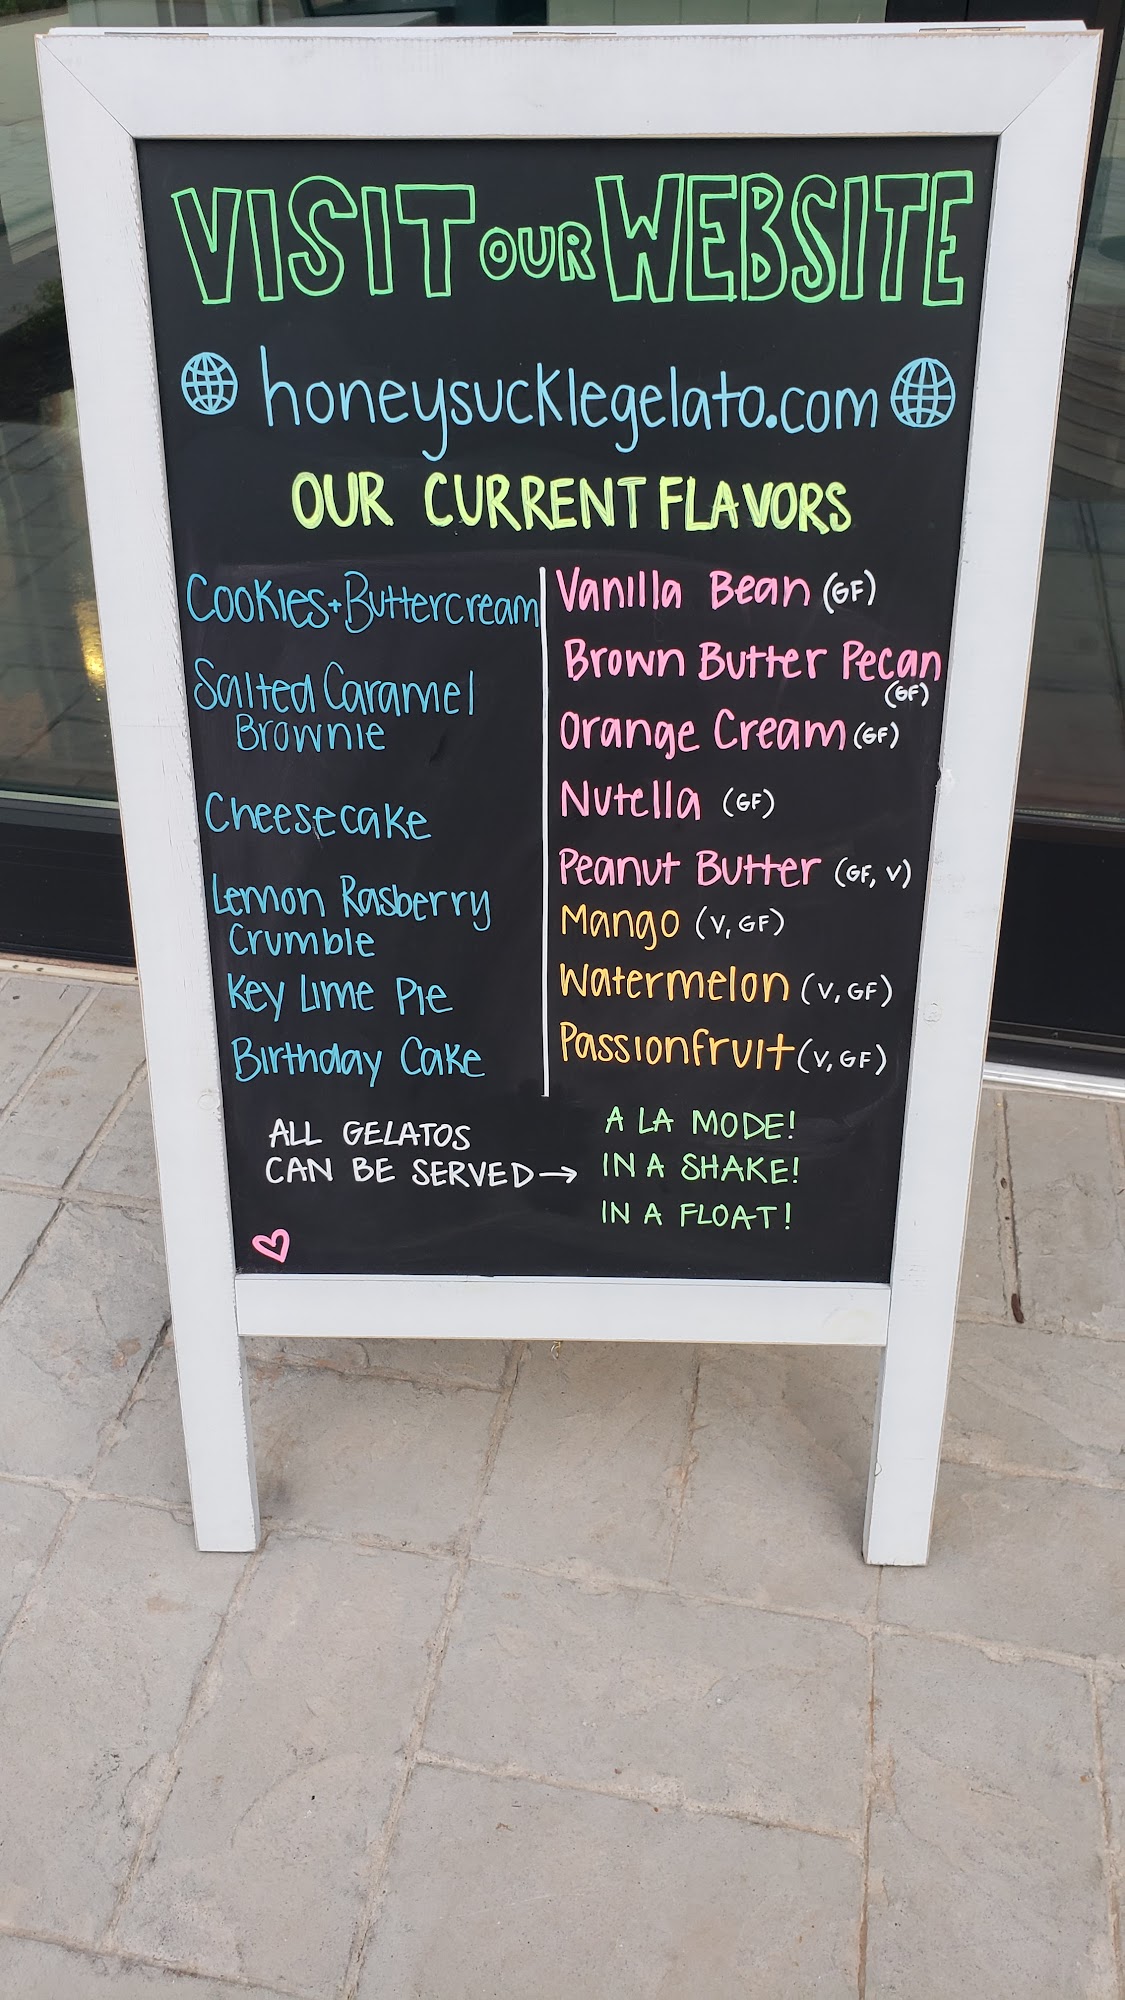 VISIT OUR WEBSITE
honeysucklegelato.com
OUR CURRENT FLAVORS
Cookies + Buttercream
Salted Caramel
Brownie
Cheesecake
Lemon Rasberry
Crumble
Key Lime Pie
Birthday Cake
Vanilla Bean (GF)
Brown Butter Pecan
(GF)
Orange Cream (GF)
Nutella (GF)
Peanut Butter (GF, V)
Mango (V, GF)
Watermelon (V, GF)
Passionfruit (V, GF)
ALL GELATOS
CAN BE SERVED →
A LA MODE!
IN A SHAKE!
IN A FLOAT!